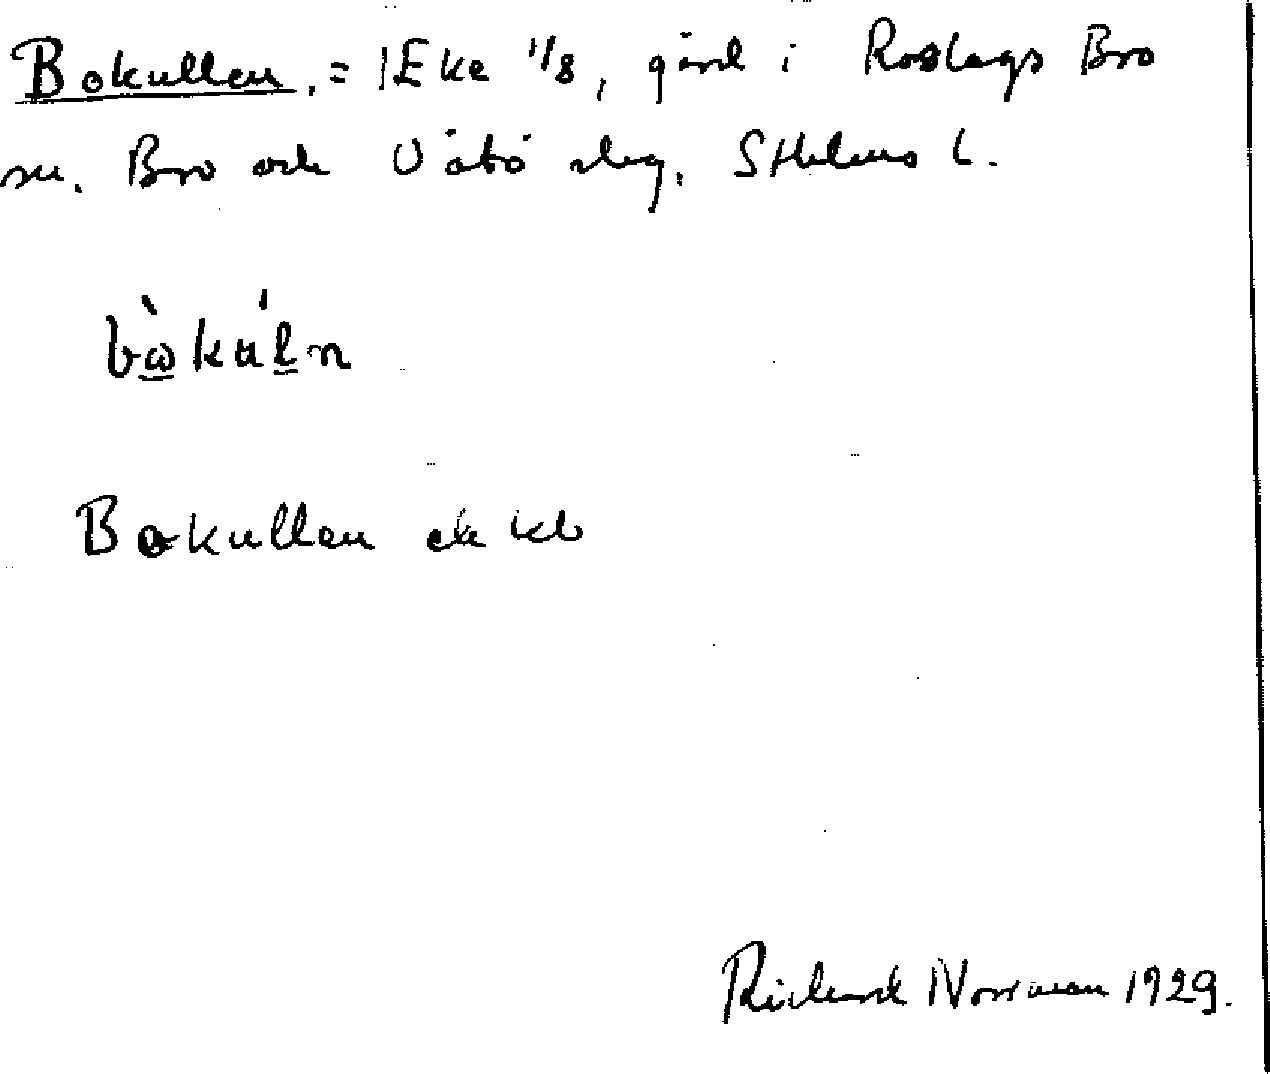 Bokullen, = 1 Eke 1/8, gård i Roslags Bro
sn. Bro och Vätö skg. Sthlms L.
bὼ̲kúl̲n
Bokullen ek kb
Richard Norrman 1929.